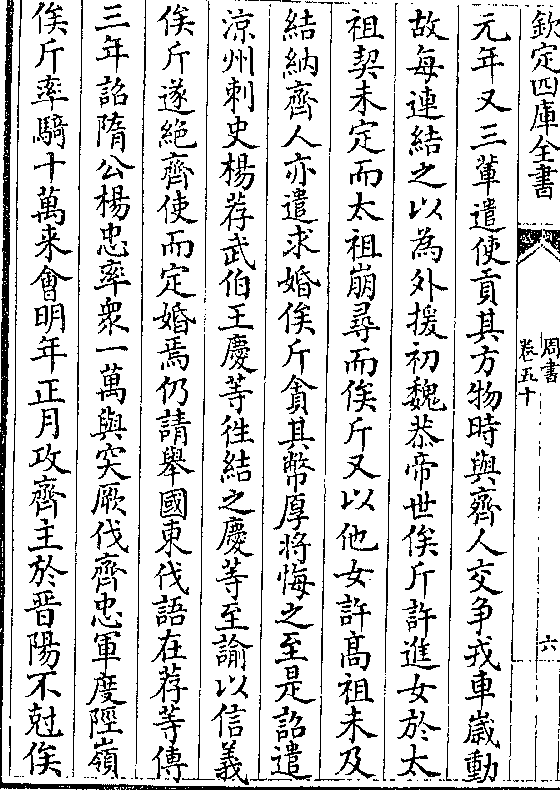 欽定四庫全書
周書
卷五十
六
元年又三軰遣使貢其方物時與齊人交争戎車嵗動
故每連結之以為外援初魏恭帝世俟斤許進女於太
祖契未定而太祖崩尋而俟斤又以他女許髙祖未及
結納齊人亦遣求婚俟斤貪其幣厚将悔之至是詔遣
涼州刺史楊荐武伯王慶等徃結之慶等至諭以信義
俟斤遂絶齊使而定婚焉仍請舉國東伐語在荐等傳
三年詔隋公楊忠率衆一萬與突厥伐齊忠軍度陘嶺
俟斤率騎十萬来會明年正月攻齊主於晋陽不尅俟